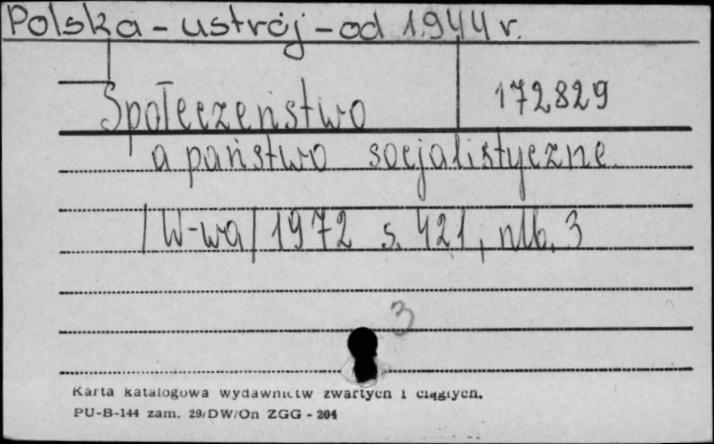 Polska - ustrój - od 1944 r.
172829
Społeczeństwo
a państwo socjalistyczne.
/W-wa/ 1972 s. 421, nlb. 3
3
Karta katalogowa wydawnictw zwartych i ciągłych.
PU-B-144 zam. 29/DW/On ZGG - 204